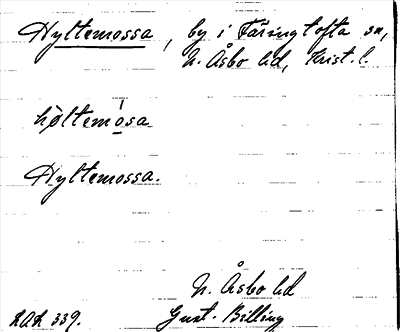 Hyltemossa, by i Färingtofta sn,
N. Åsbo hd, Krist. l.
høltemósa
Hyltemossa.
N. Åsbo hd
LAL 339. Gust. Billing